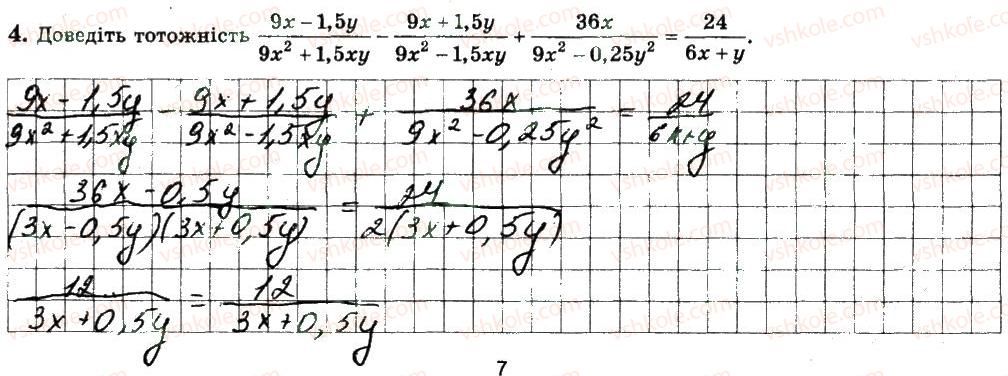 4. Доведіть тотожність (9x − 1,5y)/(9x² + 1,5xy) − (9x + 1,5y)/(9x² − 1,5xy) + 36x/(9x² − 0,25y²) = 24/(6x + y).
(9x − 1,5y)/(9x² + 1,5xy) − (9x + 1,5y)/(9x² − 1,5xy) + 36x/(9x² − 0,25y²) = 24/(6x + y)
(36x − 0,5y)/((3x − 0,5y)(3x + 0,5y)) = 24/(2(3x + 0,5y))
12/(3x + 0,5y) = 12/(3x + 0,5y)
7